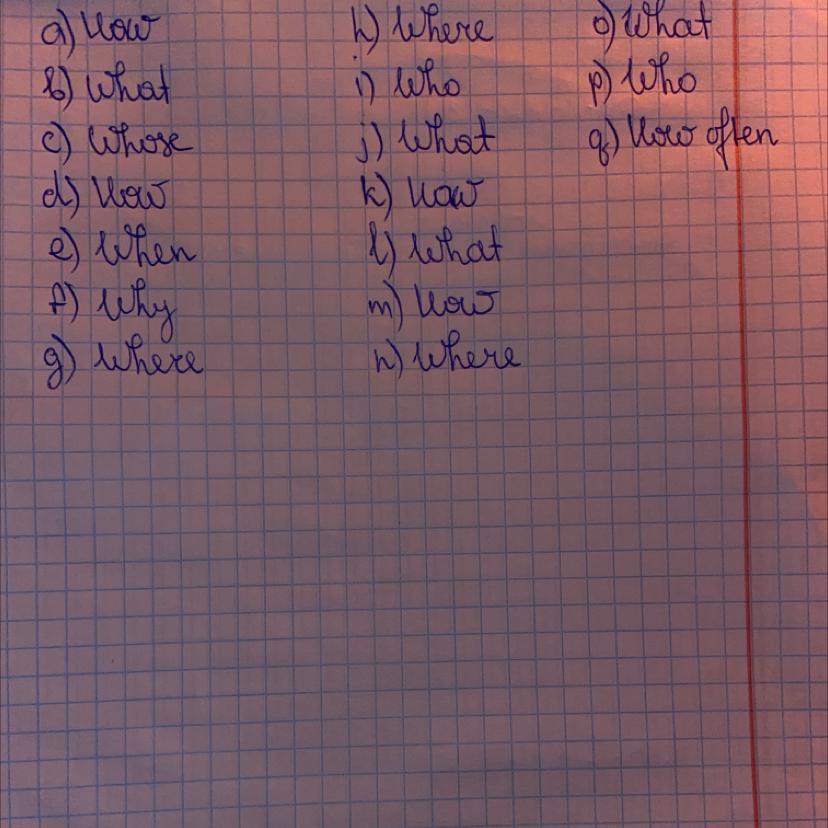 a) How
b) What
c) Whose
d) How
e) When
f) Why
g) Where
h) Where
i) Who
j) What
k) How
l) What
m) How
n) Where
o) What
p) Who
q) How often